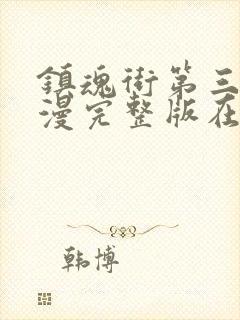 鎮魂街第三
漫完整版在
韩博